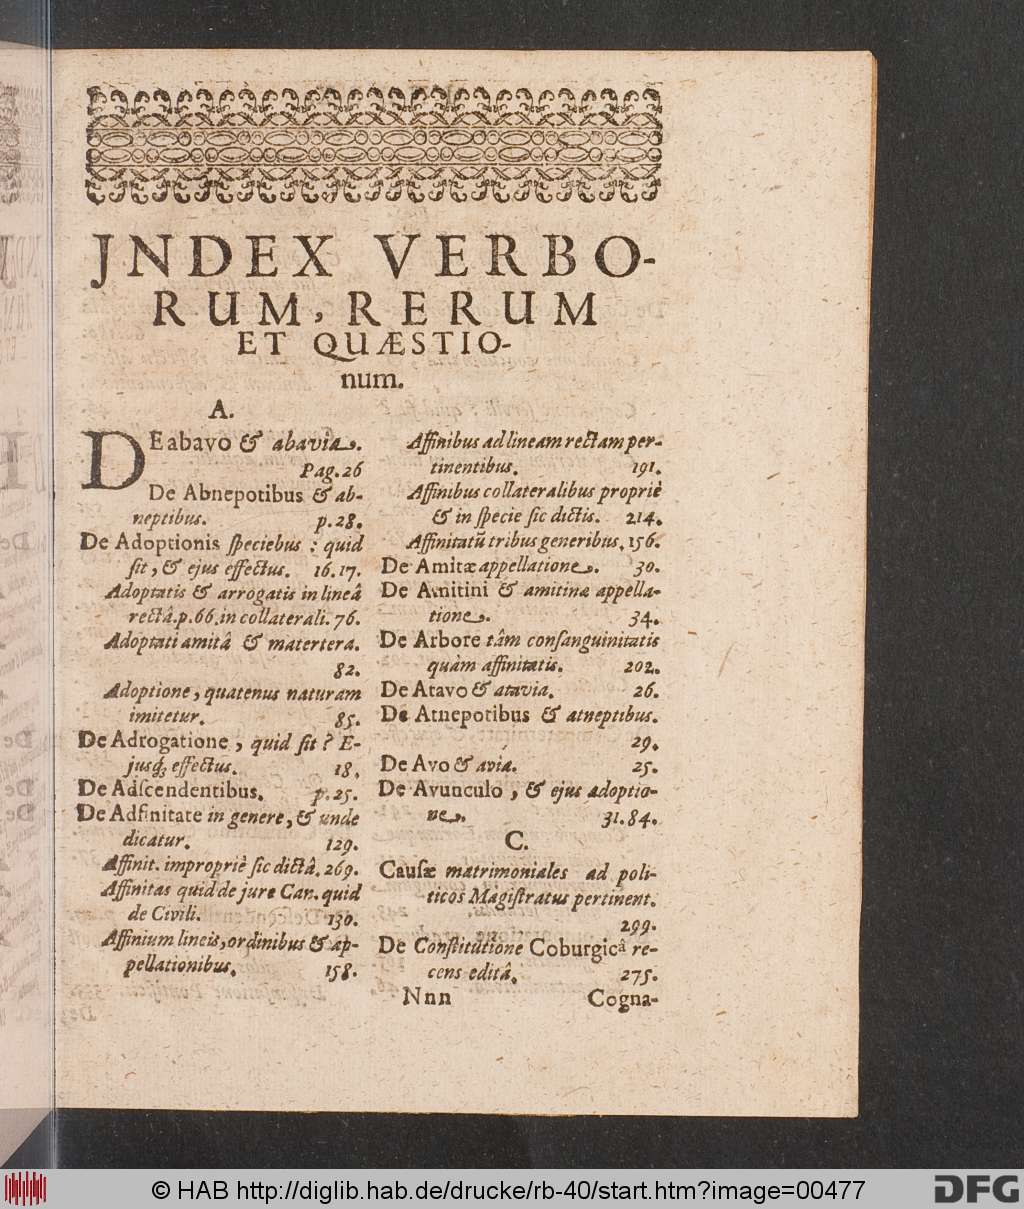 JNDEX VERBO-
RUM, RERUM
ET QUÆSTIO-
num.
A.
DEabavo & abavia.
Pag.26
De Abnepotibus & ab-
neptibus. p.28.
De Adoptionis ſpeciebus : quid
ſit, & ejus effectus. 16.17.
Adoptatis & arrogatis in lineâ
rectâ.p.66.in collaterali.76.
Adoptati amitâ & matertera.
82.
Adoptione, quatenus naturam
imitetur. 85.
De Adrogatione, quid ſit? E-
jusq́; effectus. 18.
De Adſcendentibus. p.25.
De Adfinitate in genere, & unde
dicatur. 129.
Affinit. impropriè ſic dictâ.269.
Affinitas quid de jure Can. quid
de Civili. 130.
Affinium lineis, ordinibus & ap-
pellationibus. 158.
Affinibus ad lineam rectam per-
tinentibus. 191.
Affinibus collateralibus propriè
& in ſpecie ſic dictis. 214.
Affinitatũ tribus generibus.156.
De Amitæ appellatione. 30.
De Amitini & amitinæ appella-
tione. 34.
De Arbore tâm conſanguinitatis
quàm affinitatis. 202.
De Atavo & atavia. 26.
De Atnepotibus & atneptibus.
29.
De Avo & avia. 25.
De Avunculo, & ejus adoptio-
ne. 31.84.
C.
Cauſæ matrimoniales ad poli-
ticos Magiſtratus pertinent.
299.
De Conſtitutione Coburgicâ re-
cens editâ. 275.
Nnn Cogna-
© HAB http://diglib.hab.de/drucke/rb-40/start.htm?image=00477
DFG